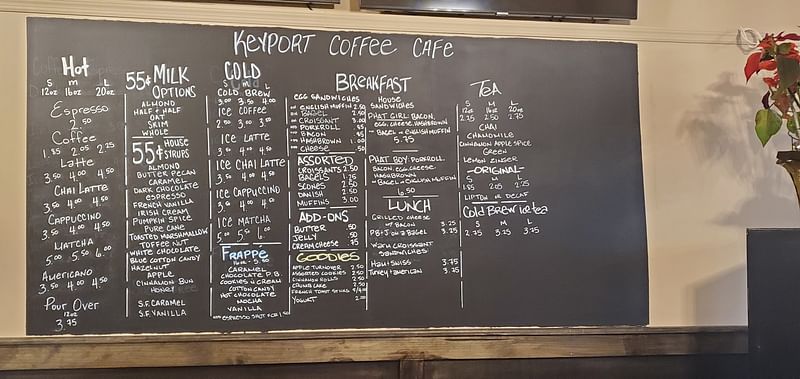 KEYPORT COFFEE CAFE
Hot
S M L
12oz 16oz 20oz
Espresso
2.50
Coffee
1.85 2.05 2.25
Latte
3.50 4.00 4.50
Chai Latte
3.50 4.00 4.50
Cappuccino
3.50 4.00 4.50
Matcha
5.00 5.50 6.00
Americano
3.50 4.00 4.50
Pour Over
12oz
3.75
55¢ MILK
OPTIONS
ALMOND
HALF & HALF
OAT
SKIM
WHOLE
55¢ HOUSE
SYRUPS
ALMOND
BUTTER PECAN
CARAMEL
DARK CHOCOLATE
ESPRESSO
FRENCH VANILLA
IRISH CREAM
PUMPKIN SPICE
PURE CANE
TOASTED MARSHMALLOW
TOFFEE NUT
WHITE CHOCOLATE
BLUE COTTON CANDY
HAZELNUT
APPLE
CINNAMON BUN
HONEY
S.F. CARAMEL
S.F. VANILLA
COLD
S M L
COLD BREW
3.00 3.50 4.00
ICE COFFEE
2.50 3.00 3.50
ICE LATTE
3.50 4.00 4.50
ICE CHAI LATTE
3.50 4.00 4.50
ICE CAPPUCCINO
3.50 4.00 4.50
ICE MATCHA
5.00 5.50 6.00
FRAPPÉ
CARAMEL
CHOCOLATE P.B.
COOKIES N CREAM
COTTON CANDY
HOT CHOCOLATE
MOCHA
VANILLA
ESPRESSO SHOT FOR 1.50
BREAKFAST
EGG SANDWICHES
ENGLISH MUFFIN 2.50
BAGEL 2.50
CROISANT 3.00
PORKROLL
BACON
HASHBROWN 1.00
CHEESE .50
ASSORTED
CROISSANTS 2.50
BAGELS 1.75
SCONES 2.50
DANISH 2.50
MUFFINS 3.00
ADD-ONS
BUTTER .50
JELLY .50
CREAM CHEESE .75
GOODIES
APPLE TURNOVER 2.50
ASSORTED COOKIES 2.50
CINNAMON ROLLS 2.50
CRUMB CAKE 2.50
FRENCH TOAST STICKS
YOGURT
HOUSE
SANDWICHES
PHAT GIRL BACON,
EGG, CHEESE, HASHBROWN
BAGEL or ENGLISH MUFFIN
5.75
PHAT BOY PORKROLL,
BACON, EGG, CHEESE,
HASHBROWN
BAGEL or ENGLISH MUFFIN
6.50
LUNCH
GRILLED CHEESE
w/ BACON 3.25
PB+J ON A BAGEL 3.25
WARM CROISSANT
SANDWICHES
Ham + Swiss 3.75
Turkey + American 3.75
TEA
S M L
12oz 16oz 20oz
2.25 2.50 2.75
CHAI
CHAMOMILE
CINNAMON APPLE SPICE
GREEN
LEMON ZINGER
-ORIGINAL-
S M L
1.85 2.05 2.25
LIPTON or DECAF
Cold BREW ice tea
S M L
2.75 3.25 3.75